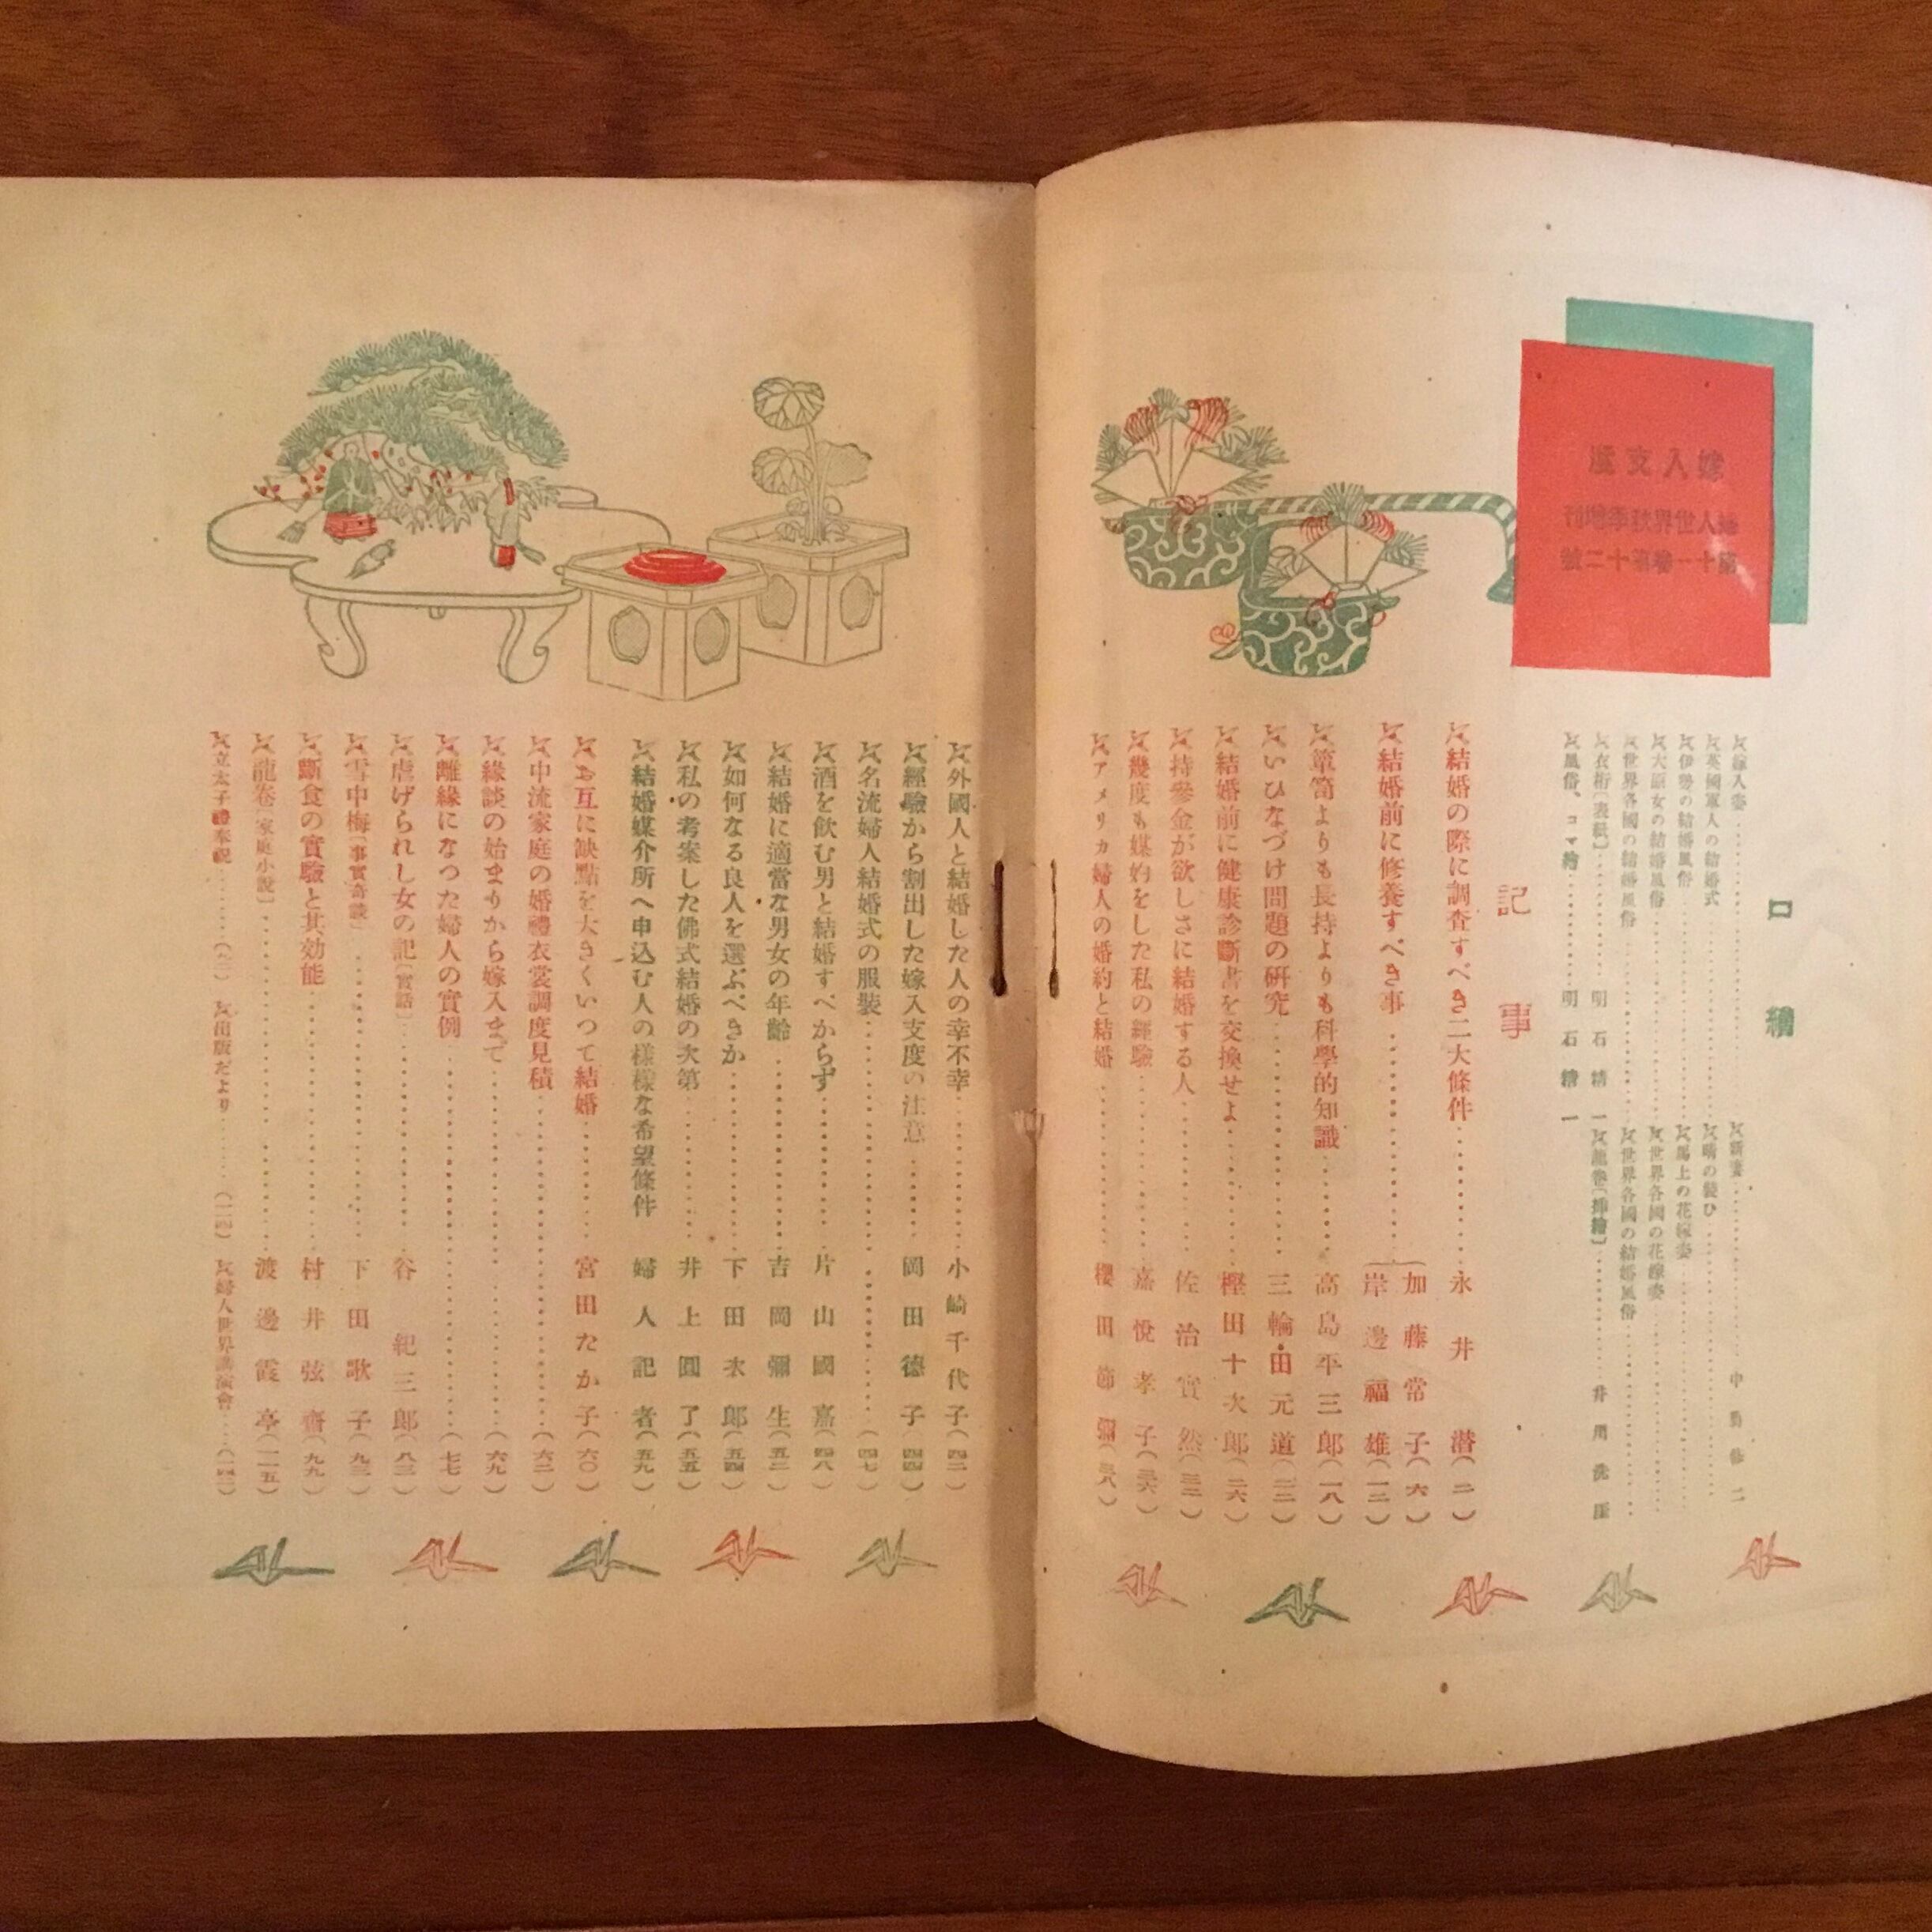 嫁入支度
婦人世界秋季増刊
第十一巻第十二號
口繪
嫁入姿
英國軍人の結婚式
伊勢の結婚風俗
大原女の結婚風俗
世界各國の結婚風俗
衣桁〔表紙〕 明石精一
風俗、コマ繪 明石精一
晴の裝ひ
馬上の花嫁姿
世界各國の花嫁姿
世界各國の結婚風俗
龍卷〔挿繪〕 井川洗厓
記事
結婚の際に調査すべき二大條件 永井潜(二)
結婚前に修養すべき事 加藤常子(六) 岸邊福雄(一二)
簞笥よりも長持よりも科學的知識 高島平三郎(一八)
いひなづけ問題の研究 三輪田元道(二二)
結婚前に健康診斷書を交換せよ 樫田十次郎(二六)
持參金が欲しさに結婚する人 佐治實然(三二)
幾度も媒妁をした私の經驗 嘉悅孝子(三六)
アメリカ婦人の婚約と結婚 櫻田節彌(三八)
外國人と結婚した人の幸不幸 小崎千代子(四二)
經驗から割出した嫁入支度の注意 岡田德子(四四)
名流婦人結婚式の服裝(四七)
酒を飮む男と結婚すべからず 片山國嘉(四八)
結婚に適當な男女の年齡 吉岡彌生(五二)
如何なる良人を選ぶべきか 下田次郎(五四)
私の考案した佛式結婚の次第 井上圓了(五五)
結婚媒介所へ申込む人の樣樣な希望條件 婦人記者(五九)
お互に缺點を大きくいつて結婚 宮田たか子(六〇)
中流家庭の婚禮衣裳調度見積(六二)
緣談の始まりから嫁入まで(六九)
離緣になつた婦人の實例(七七)
虐げられし女の記〔實話〕 谷紀三郎(八三)
雪中梅〔事實奇談〕 下田歌子(九三)
斷食の實驗と其効能 村井弦齋(九九)
龍卷〔家庭小說〕 渡邊霞亭(一一五)
立太子禮奉祝 出版だより 婦人世界講演會